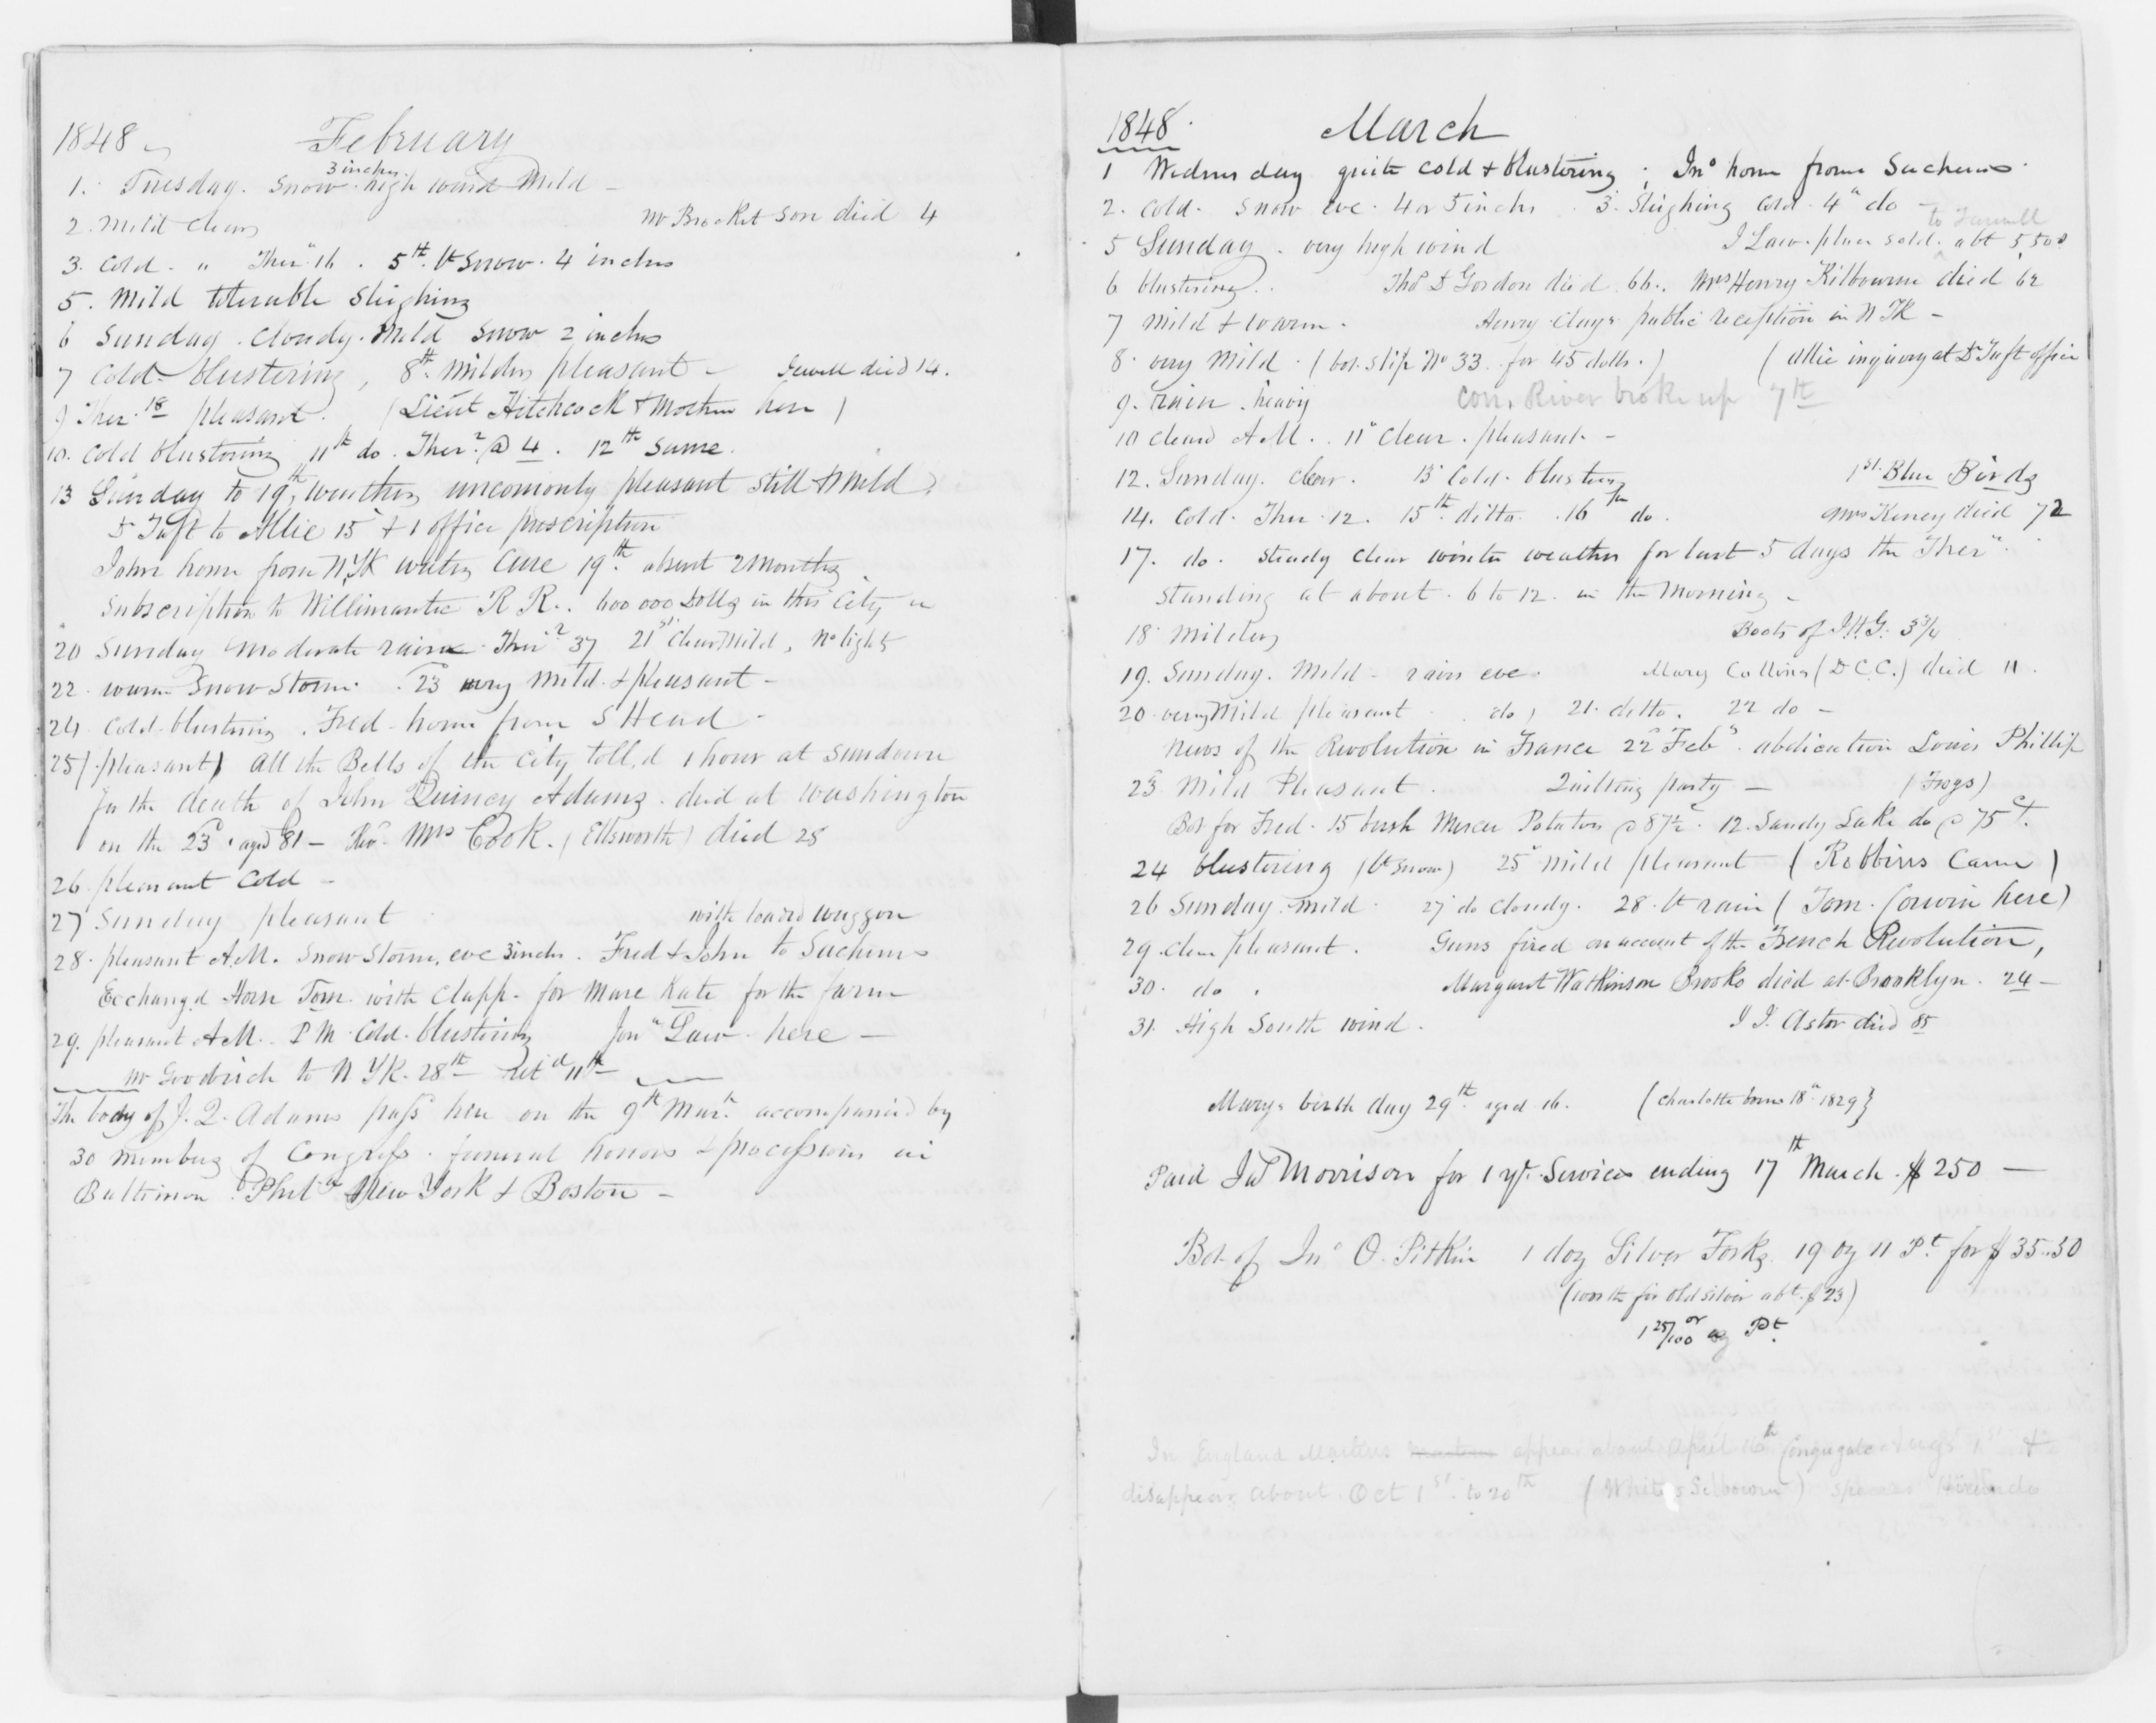 1848
February
1. Tuesday. Snow 3 inches. high wind mild –
2. Mild Clear
Mr Brocket son died 4
3. Cold. " Ther. 16 . 5th. lt Snow. 4 inches
5. Mild tolerable Sleighing
6 Sunday. Cloudy. Mild Snow 2 inches
7 Cold blustering, 8th. milder pleasant – Jewell died 14.
9 Ther. 18 pleasant. (Lieut Hitchcock & Mother here)
10. Cold blustering 11th do. Ther. @ 4. 12th Same.
13 Sunday to 19th, weather uncommonly pleasant still & mild
Dr Taft to Allie 15 & 1 office prescription
John home from N.YK water Cure 19th. absent 2 months
Subscription to Willimantic R R.. 600 000 Dolls in this City
20 Sunday moderate rain Ther. 37 21st Clear Mild, No light
22. warm Snow Storm. 23 very mild & pleasant –
24 Cold blustering. Fred home from S Head –
25 (pleasant) All the Bells of the City toll,d 1 hour at Sundown
for the death of John Quincy Adams. died at Washington
on the 23d. aged 81 – Mrs Cook. (Ellsworth) died 28
26. pleasant Cold –
27 Sunday pleasant
with loaded waggon
28. pleasant A.M. Snow Storm, eve 3 inches. Fred & John to Sachems
Exchangd Horse Tom with Clapp. for Mare Kate for the farm
29. pleasant A.M. P M. Cold. blustering Jonn Law here –
Mr Goodrich to N YK. 28th – Retd 11th
The body of J. Q. Adams pass here on the 9th Mar. accompanied by
30 members of Congress. funeral honors & processions in
Baltimore. Phila New York & Boston –
1848.
March
1 Wednesday quite cold & blustering; Jno home from Sachems.
2. Cold. Snow eve. 4 or 5 inches. 3. Sleighing Cold. 4th do –
to Farwell
5 Sunday. very high wind
J Law. place sold. abt 5500
6 blustering.. Thos D Gordon died. 66.. Mrs Henry Kilbourne died 62
7 Mild & warm. Henry Clays public reception in N YK –
8. very Mild. (bot. Slip No 33. for 45 dolls.) (Allie inquiry at Dr Taft office
9. rain. heavy Conn. River broke up 7th
10 Cleard A.M. . 11th Clear. pleasant. –
12. Sunday. clear. 13 Cold. blustery 1st Blue Birds
14. Cold. Ther. 12. 15th. ditto. 16th do. Mrs Keney died 72
17. do. Steady clear winter weather for last 5 days the Ther.
standing at about. 6 to 12. in the morning –
18. Milder Boots of J.H.G. 3 3/4
19. Sunday. Mild – rain eve. Mary Collins (D.C.C.) died 11.
20. very Mild pleasant do, 21. ditto. 22 do –
News of the Revolution in France 22d Feby. abdication Louis Phillip
23 Mild Pleasant. Quilting party – (Frogs)
Bot for Fred. 15 bush Mercer Potatoes @ 87½. 12. Sandy Lake do @ 75 ct.
24 blustering (lt Snow) 25th mild pleasant (Robbins Came)
26 Sunday. mild. 27 do cloudy. 28. lt rain (Tom. Corwin here)
29. clear pleasant. Guns fired on account of the French Revolution,
30. do. Margaret Watkinson Brooks died at Brooklyn. 24 –
31. High South wind. J J. Astor died 85
Marys birth day 29th. aged 16. (Charlotte born 18th 1829}
Paid Morrison for 1 yr. Services ending 17th March. $ 250 –
Bot of Jno O. Pitkin 1 doz Silver Forks. 19 oz 11 Pt for $ 35..50
(worth for old silver abt. $ 23)
1 25/100 or oz Pt.
In England Martins appear about April 16th Congregate Augt 1st &
disappear about Oct 1st. to 20th (Whites Selbourn) Species Hirundo